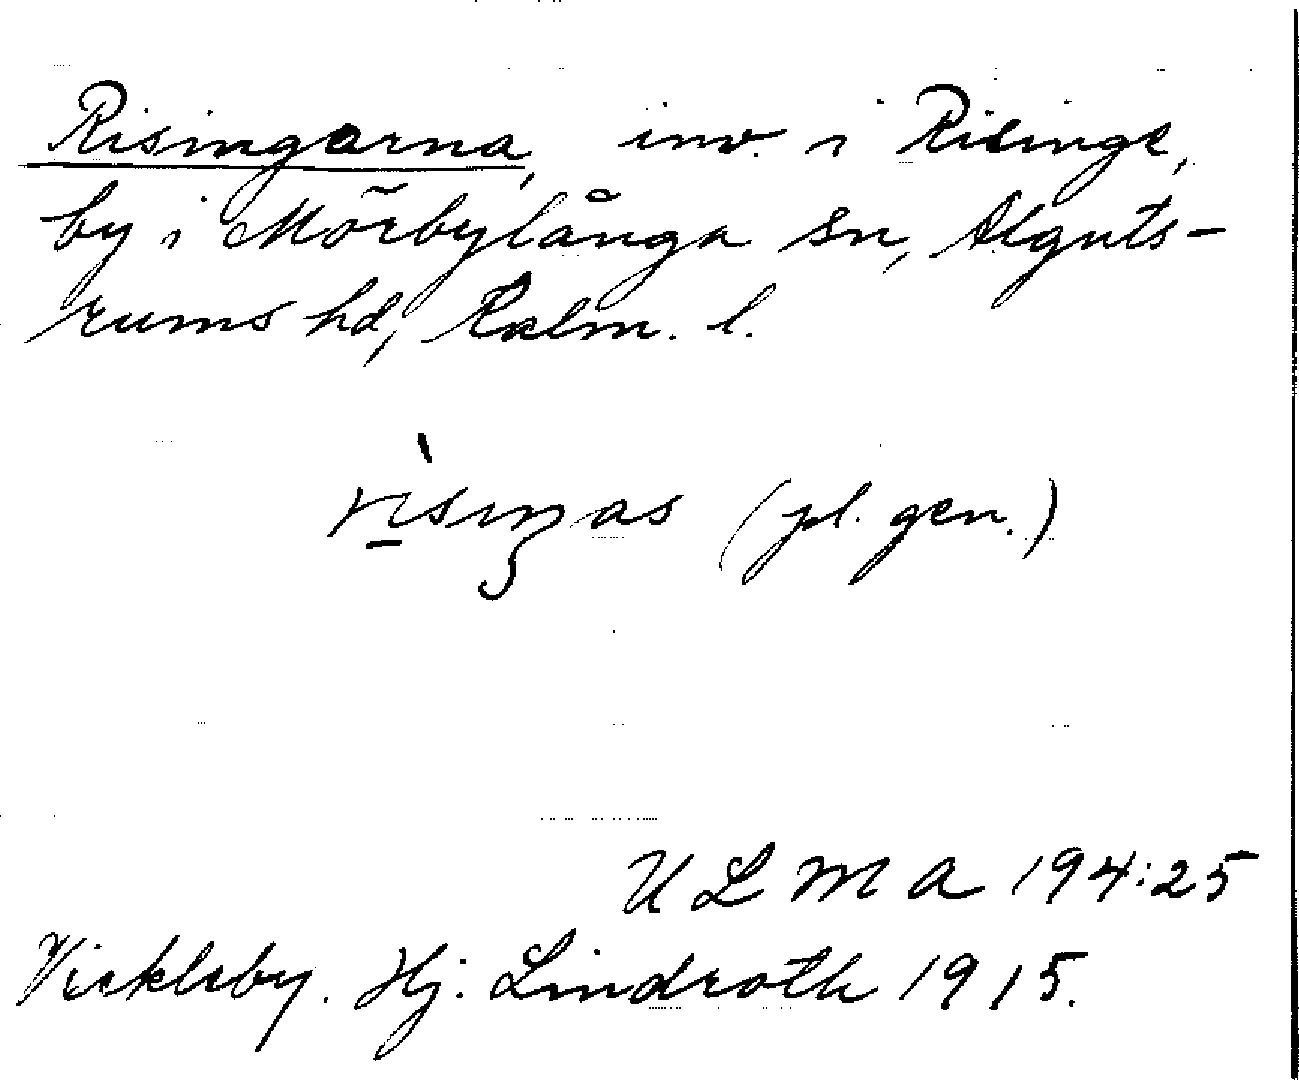 Risingarna, inv. i Risinge,
by i Mörbylånga sn, Alguts-
rums hd, Kalm. l.
(pl. gen.)
ULMA 194:25
Vickleby. Hj. Lindroth 1915.